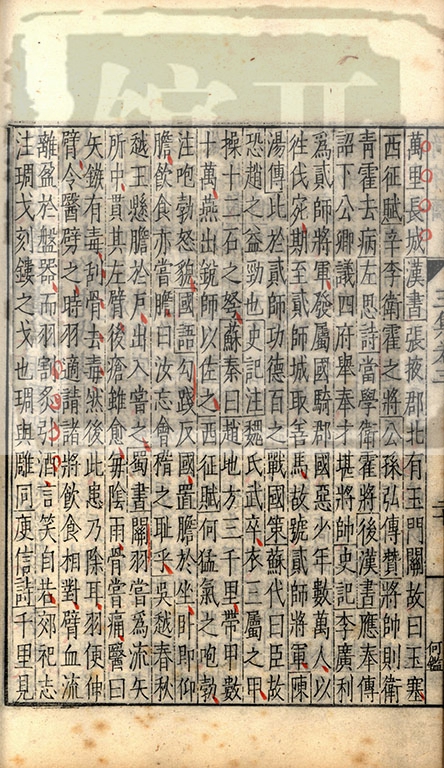 萬里長城漢書張掖郡北有玉門關故曰玉塞
西征賦辛李衛霍之將公孫弘傳贊將帥則衛
青霍去病左思詩當學衛霍將後漢書應奉傳
詔下公卿議四府舉奉才堪將帥史記李廣利
爲貳師將軍發屬國騎郡國惡少年數萬人以
徃伐宛期至貳師城取善馬故號貳師將軍陳
湯傳比於貳師功德百之戰國策蘇代曰臣故
恐趙之益勁也史記注魏氏武卒衣三屬之甲
操十二石之弩蘇秦曰趙地方三千里帶甲數
十萬燕出銳師以佐之西征賦何猛氣之咆勃
注咆勃怒貌國語勾踐反國置膽於坐卧即仰
膽飲食亦嘗膽曰汝忘會稽之耻乎吳越春秋
越王懸膽於戶出入嘗之蜀書關羽嘗爲流矢
所中貫其左臂後瘡雖愈每陰雨骨嘗痛醫曰
矢鏃有毒刮骨去毒然後此患乃除耳羽便伸
臂令醫劈之時羽適請諸將飲食相對臂血流
離盈於盤器而羽割炙引酒言笑自若郊祀志
注琱戈刻鏤之戈也琱與雕同庾信詩千里見
何鑑